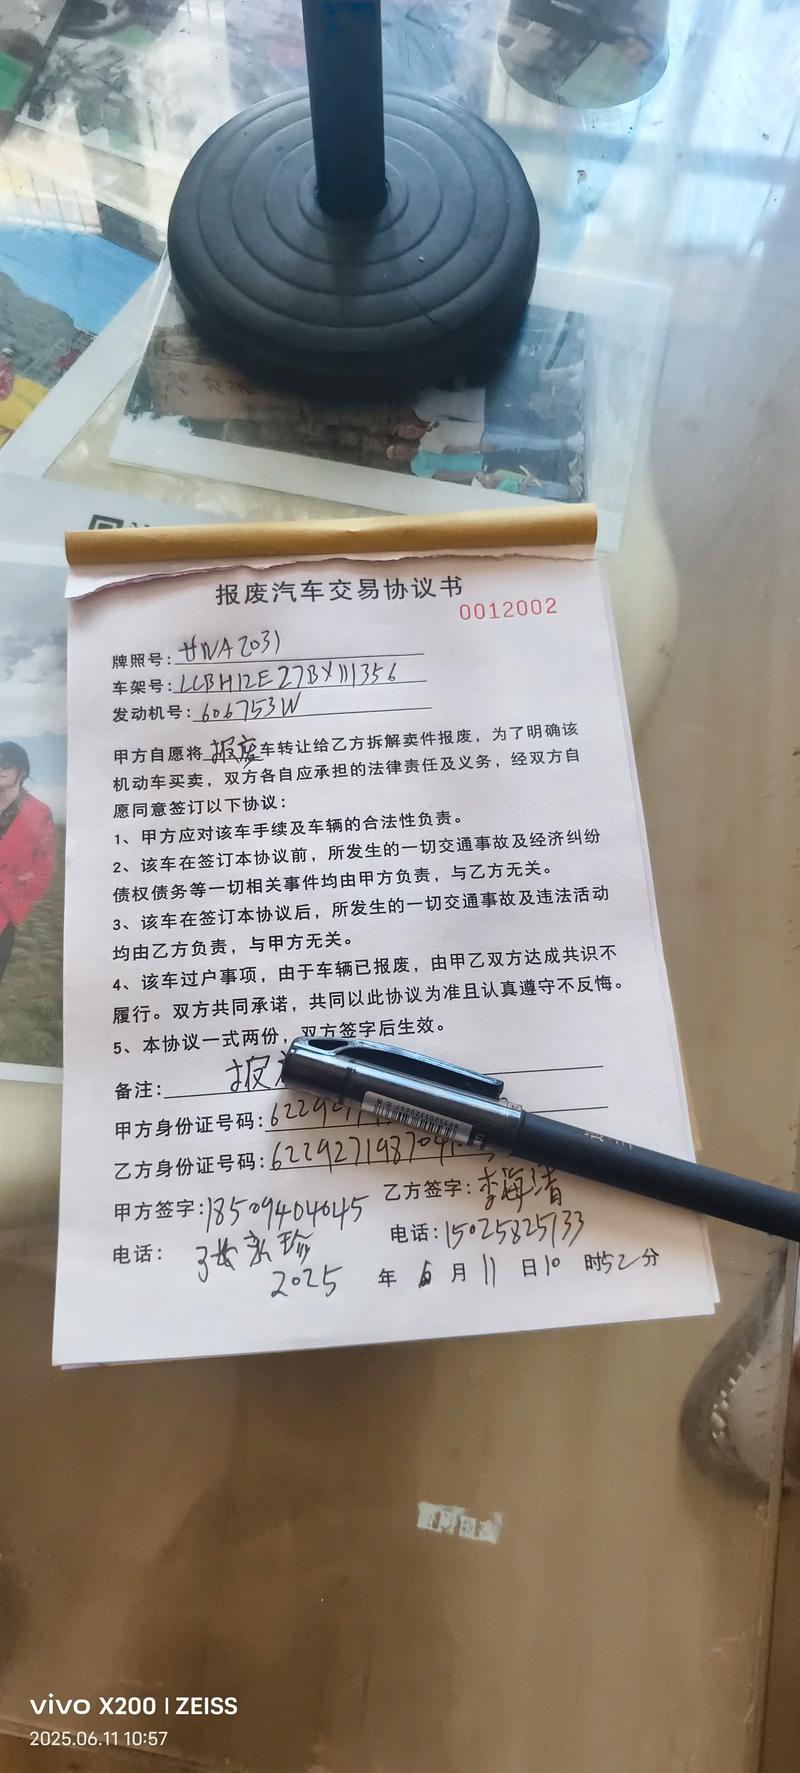 报废汽车交易协议书
0012002
牌照号：甘NA2031
车架号：LCBH12E27BX111356
发动机号：606753W
甲方自愿将报废车转让给乙方拆解卖件报废，为了明确该
机动车买卖，双方各自应承担的法律责任及义务，经双方自
愿同意签订以下协议：
1、甲方应对该车手续及车辆的合法性负责。
2、该车在签订本协议前，所发生的一切交通事故及经济纠纷
债权债务等一切相关事件均由甲方负责，与乙方无关。
3、该车在签订本协议后，所发生的一切交通事故及违法活动
均由乙方负责，与甲方无关。
4、该车过户事项，由于车辆已报废，由甲乙双方达成共识不
履行。双方共同承诺，共同以此协议为准且认真遵守不反悔。
5、本协议一式两份，双方签字后生效。
备注：报
甲方身份证号码：6229
乙方身份证号码：62292719870
甲方签字：18509404045 乙方签字：李海清
电话： 电话：15025825733
2025 年 6 月 11 日 10 时 52 分
vivo X200 | ZEISS
2025.06.11 10:57